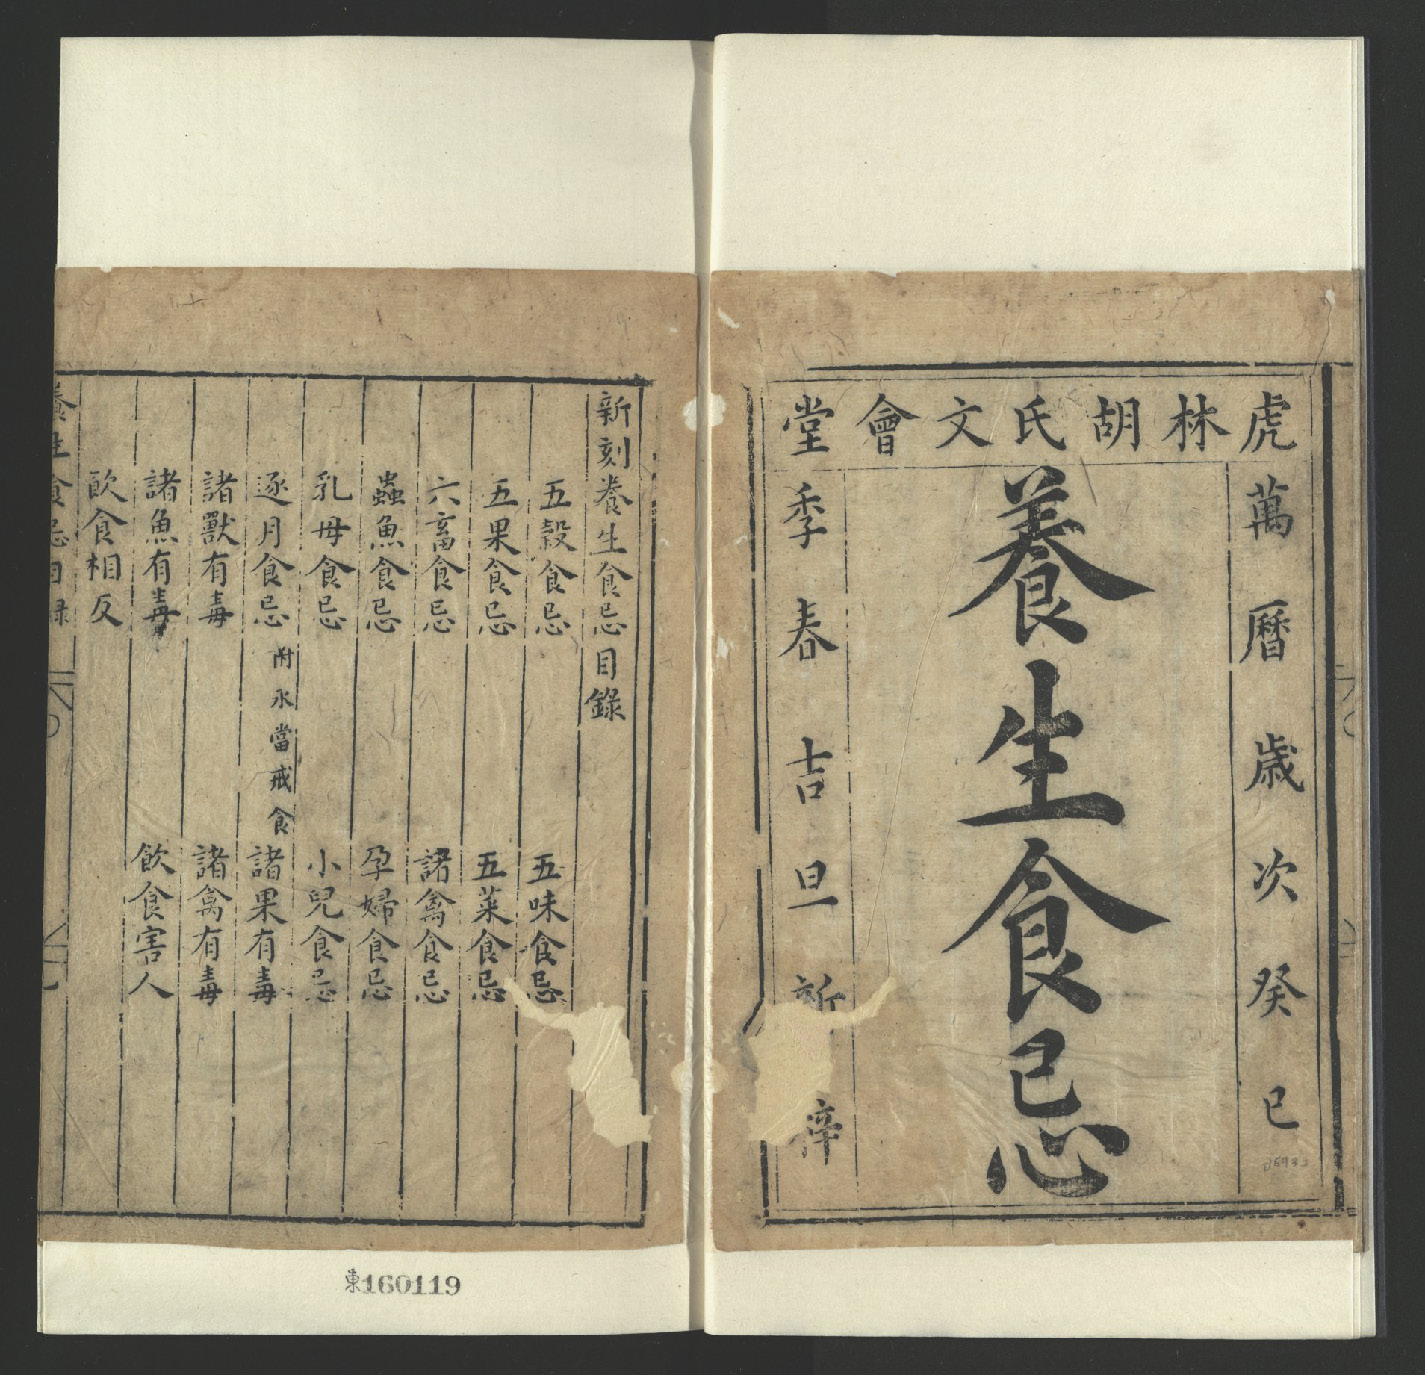 虎林胡氏文會堂
萬曆歲次癸巳
養生食忌
季春吉旦新梓
新刻養生食忌目錄
五穀食忌 五味食忌
五果食忌 五菜食忌
六畜食忌 諸禽食忌
蟲魚食忌 孕婦食忌
乳母食忌 小兒食忌
逐月食忌 附氷當戒食 諸果有毒
諸獸有毒 諸禽有毒
諸魚有毒 飲食害人
飲食相反
養生食忌目錄
東160119